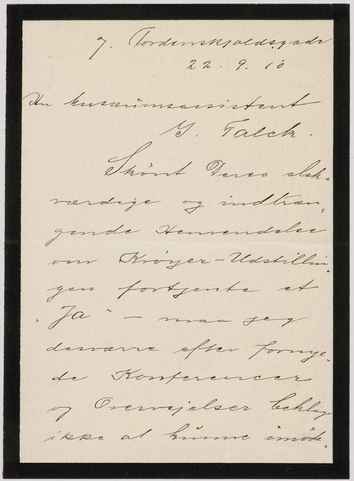 7. Tordenskjoldsgade
22. 9. 10
Hr Museumsassistent
G. Falck.
Skönt Deres elsk-
værdige og indtræn-
gende Henvendelse
om Kröyer-Udstillin-
gen fortjente et
"Ja" – maa jeg
desværre efter fornye-
de Konferencer
og Overvejelser beklage
ikke at kunne imök.